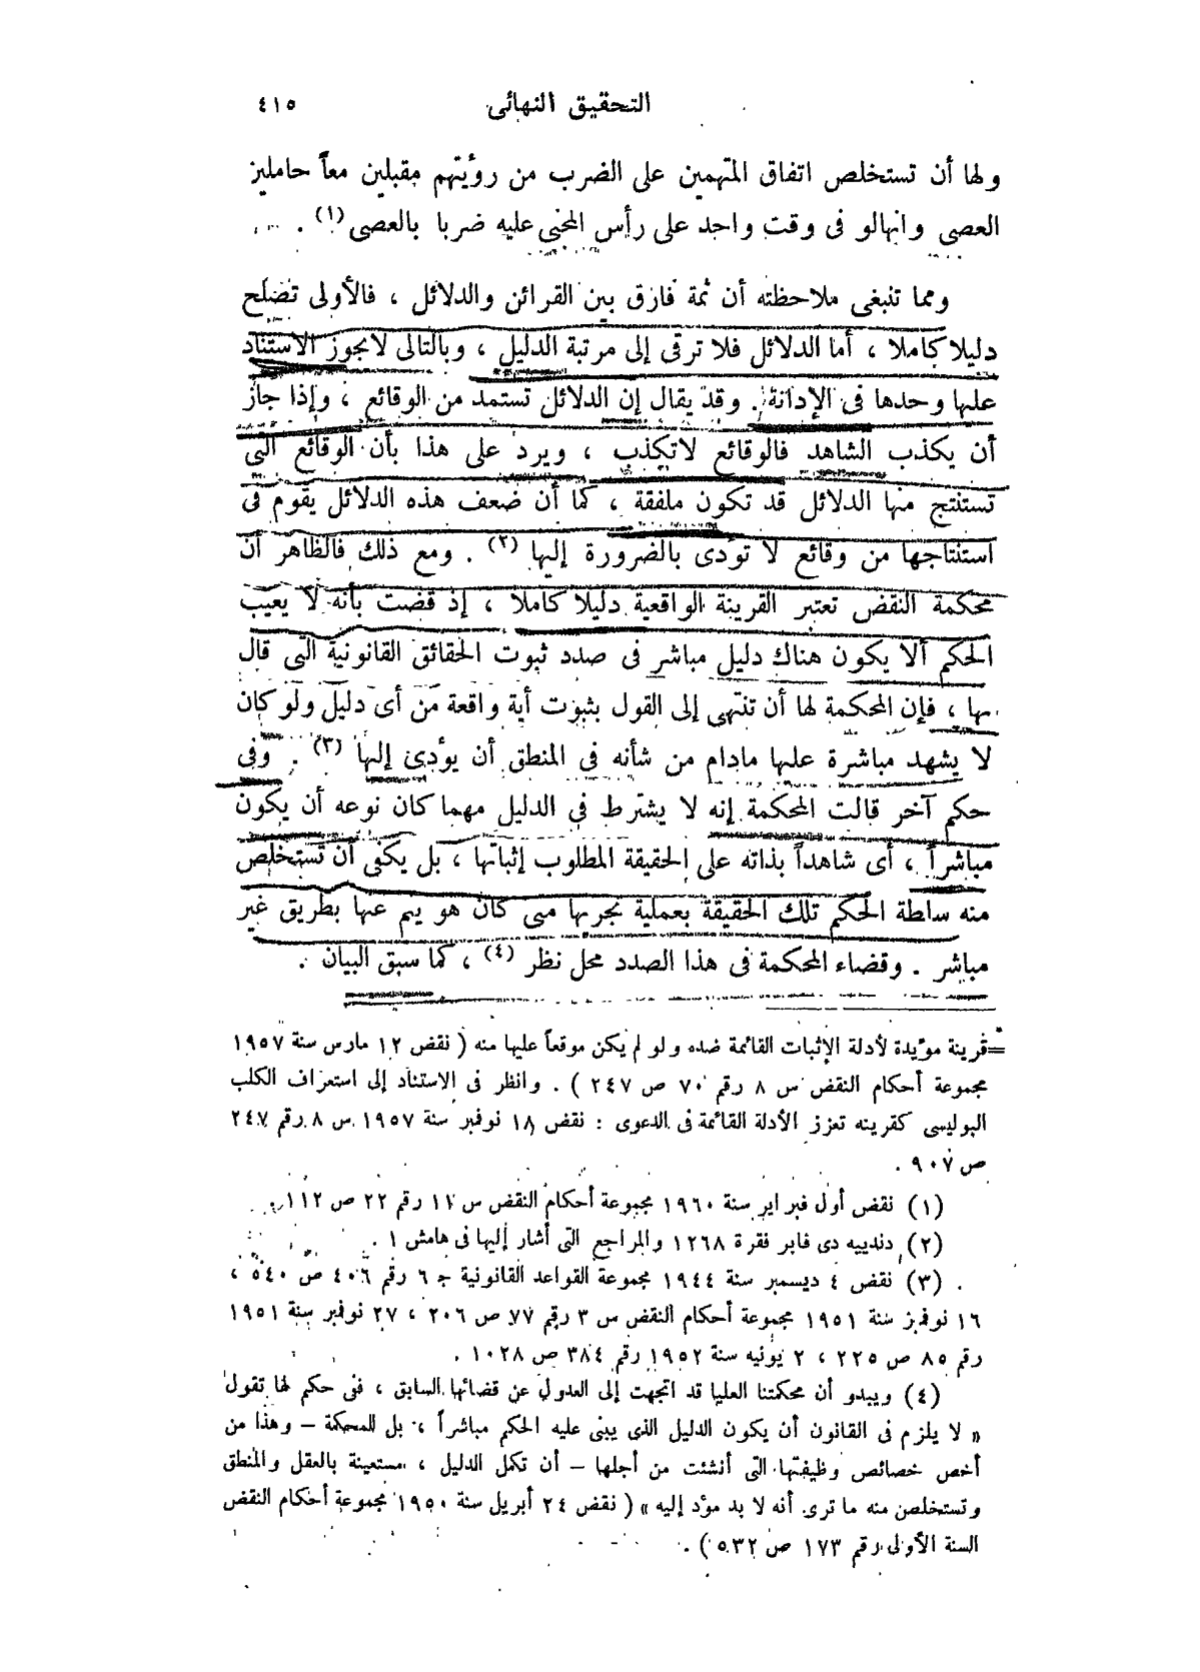 التحقيق النهائى ٤١٥
ولها أن تستخلص اتفاق المتهمين على الضرب من رؤيتهم مقبلين معاً حاملين
العصى وانهالو فى وقت واحد على رأس المجنى عليه ضربا بالعصى (١) .
ومما تنبغى ملاحظته أن ثمة فارق بين القرائن والدلائل ، فالأولى تصلح
دليلا كاملا ، أما الدلائل فلا ترقى إلى مرتبة الدليل ، وبالتالى لا يجوز الاستناد
عليها وحدها فى الإدانة . وقد يقال إن الدلائل تستمد من الوقائع ، وإذا جاز
أن يكذب الشاهد فالوقائع لا تكذب ، ويرد على هذا بأن الوقائع التى
تستنتج منها الدلائل قد تكون ملفقة ، كما أن ضعف هذه الدلائل يقوم فى
استنتاجها من وقائع لا تؤدى بالضرورة إليها (٢) . ومع ذلك فالظاهر أن
محكمة النقض تعتبر القرينة الواقعية دليلا كاملا ، إذ قضت بأنه لا يعيب
الحكم ألا يكون هناك دليل مباشر فى صدد ثبوت الحقائق القانونية التى قال
بها ، فإن المحكمة لها أن تنتهى إلى القول بثبوت أية واقعة من أى دليل ولو كان
لا يشهد مباشرة عليها مادام من شأنه فى المنطق أن يؤدى إليها (٣) . وفى
حكم آخر قالت المحكمة إنه لا يشترط فى الدليل مهما كان نوعه أن يكون
مباشراً ، أى شاهداً بذاته على الحقيقة المطلوب إثباتها ، بل يكفى أن تستخلص
منه سلطة الحكم تلك الحقيقة بعملية تجريها متى كان هو ينم عنها بطريق غير
مباشر . وقضاء المحكمة فى هذا الصدد محل نظر (٤) ، كما سبق البيان .
=قرينة مؤيدة لأدلة الإثبات القائمة ضده ولو لم يكن موقعاً عليها منه ( نقض ١٢ مارس سنة ١٩٥٧
مجموعة أحكام النقض س ٨ رقم ٧٠ ص ٢٤٧ ) . وانظر فى الاستناد إلى استعراف الكلب
البوليسى كقرينه تعزز الأدلة القائمة فى الدعوى : نقض ١٨ نوفبر سنة ١٩٥٧ س ٨ رقم ٢٤٧
ص ٩٠٧ .
(١) نقض أول فبراير سنة ١٩٦٠ مجموعة أحكام النقض س ١١ رقم ٢٢ ص ١١٢ .
(٢) دندييه دى فابر فقرة ١٢٦٨ والمراجع التى أشار إليها فى هامش ١ .
(٣) نقض ٤ ديسمبر سنة ١٩٤٤ مجموعة القواعد القانونية ج ٦ رقم ٤٠٦ ص ٥٤٠ ،
١٦ نوفبر سنة ١٩٥١ مجموعة أحكام النقض س ٣ رقم ٧٧ ص ٢٠٦ ، ٢٧ نوفبر سنة ١٩٥١
رقم ٨٥ ص ٢٢٥ ، ٢ يونيه سنة ١٩٥٢ رقم ٣٨٤ ص ١٠٢٨ .
(٤) ويبدو أن محكمتنا العليا قد اتجهت إلى العدول عن قضائها السابق ، فى حكم لها تقول
« لا يلزم فى القانون أن يكون الدليل الذى يبنى عليه الحكم مباشراً ، بل للمحكمة – وهذا من
أخص خصائص وظيفتها التى أنشئت من أجلها – أن تكمل الدليل ، مستعينة بالعقل والمنطق
وتستخلص منه ما ترى أنه لا بد مؤد إليه » ( نقض ٢٤ أبريل سنة ١٩٥٠ مجموعة أحكام النقض
السنة الأولى رقم ١٧٣ ص ٥٣٢ ) .